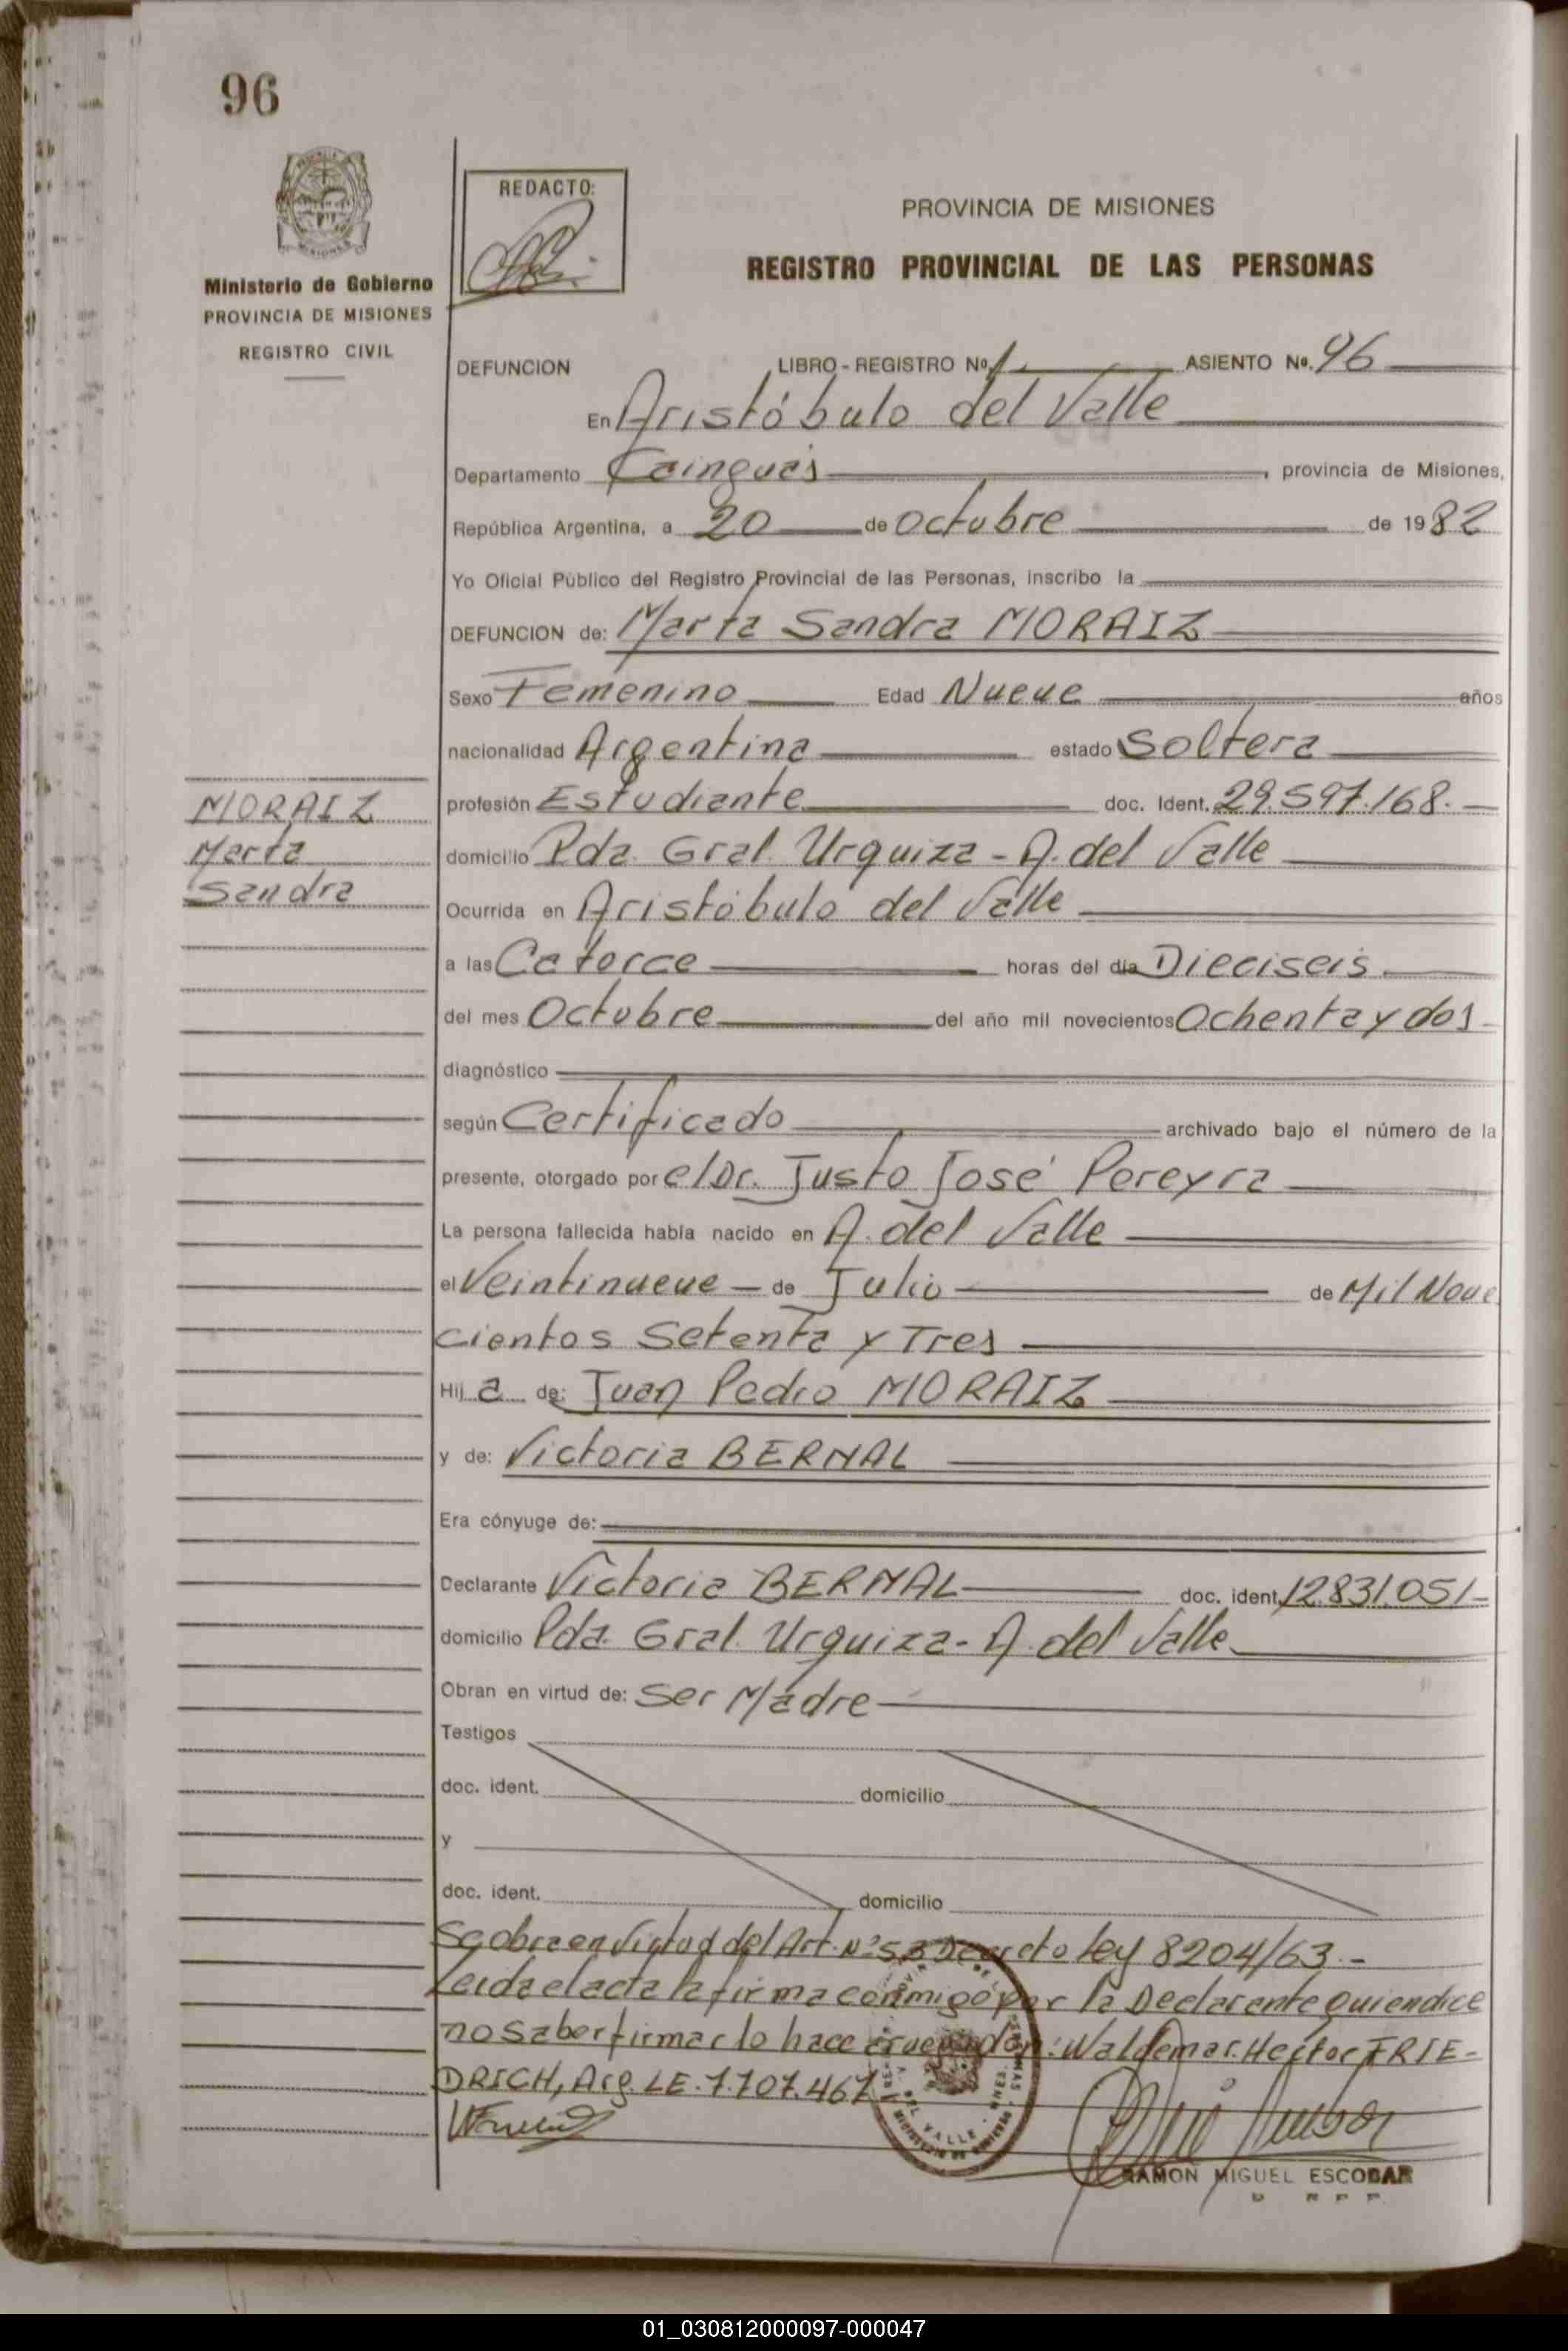 96
Ministerio de Gobierno
PROVINCIA DE MISIONES
REGISTRO CIVIL
REDACTO:
PROVINCIA DE MISIONES
REGISTRO PROVINCIAL DE LAS PERSONAS
DEFUNCION LIBRO - REGISTRO Nº 1 ASIENTO Nº. 96
En Aristóbulo del Valle
Departamento Cainguás, provincia de Misiones,
República Argentina, a 20 de Octubre de 1982
Yo Oficial Público del Registro Provincial de las Personas, inscribo la
DEFUNCION de: Marta Sandra MORAIZ
Sexo Femenino Edad Nueve años
nacionalidad Argentina estado Soltera
profesión Estudiante doc. Ident. 29.597.168.
domicilio Pda. Gral. Urquiza - A. del Valle
Ocurrida en Aristóbulo del Valle
a las Catorce horas del día Dieciseis
del mes Octubre del año mil novecientos Ochenta y dos
diagnóstico
según Certificado archivado bajo el número de la
presente, otorgado por el Dr. Justo José Pereyra
La persona fallecida había nacido en A. del Valle
el Veintinueve de Julio de Mil Nove
cientos Setenta y Tres
Hija de: Juan Pedro MORAIZ
y de: Victoria BERNAL
Era cónyuge de:
Declarante Victoria BERNAL doc. ident. 12.831.051
domicilio Pda. Gral. Urquiza - A. del Valle
Obran en virtud de: Ser Madre
Testigos
doc. ident. domicilio
y
doc. ident. domicilio
Se obra en virtud del Art. Nº 53 Decreto Ley 8204/63.-
Leida el acta la firma conmigo por la Declarante quien dice
no saber firmar lo hace a ruego don: Waldemar Hector FRIE-
DRICH, Arg. LE. 7.707.467
RAMON MIGUEL ESCOBAR
MORAIZ
Marta
Sandra
01_030812000097-000047